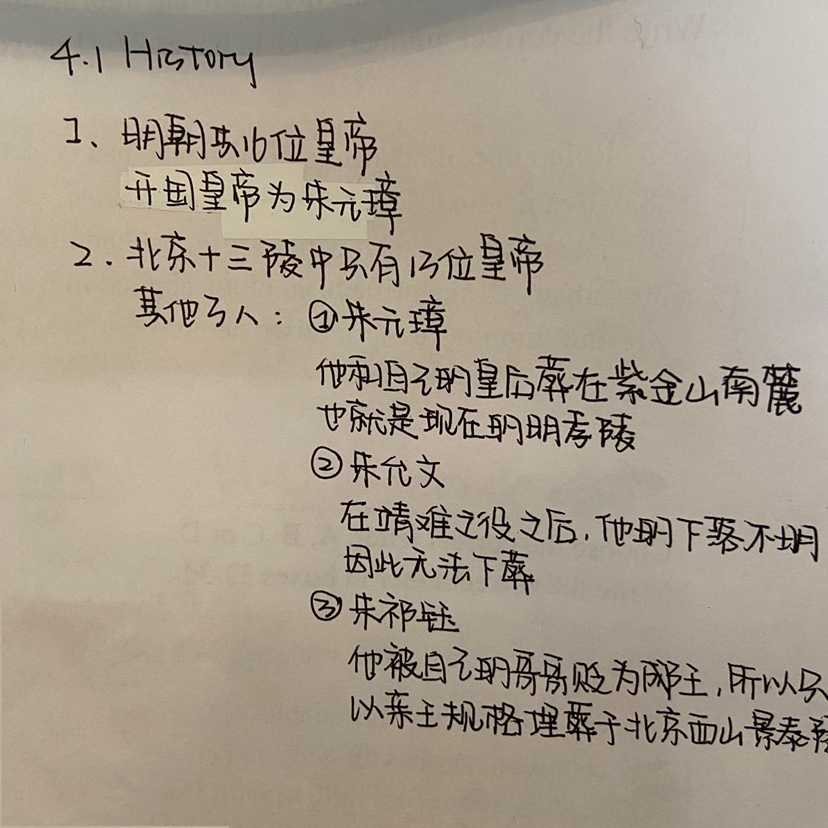 4.1 History
1、明朝共16位皇帝
开国皇帝为朱元璋
2、北京十三陵中只有13位皇帝
其他3人：①朱元璋
他和自己的皇后葬在紫金山南麓
也就是现在的明孝陵
②朱允文
在靖难之役之后，他的下落不明
因此无法下葬
③朱祁钰
他被自己的哥哥贬为郕王，所以只
以亲王规格埋葬于北京西山景泰陵